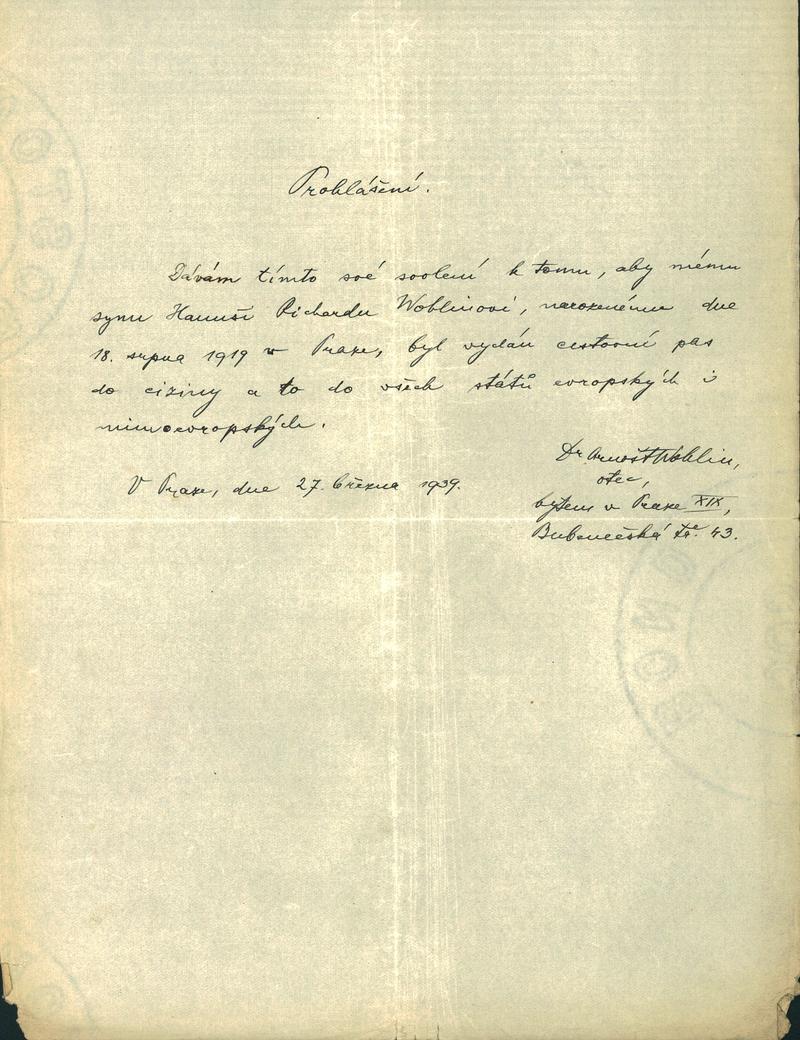 Prohlášení.
Dávám tímto své svolení k tomu, aby mému
synu Hanuši Richardu Woblinovi, narozenému dne
18. srpna 1919 v Praze, byl vydán cestovní pas
do ciziny a to do všech států evropských i
mimoevropských.
Dr Arnošt Woblin,
otec,
V Praze, dne 27. března 1939.
bytem v Praze XIX,
Bubenečská tř. 43.